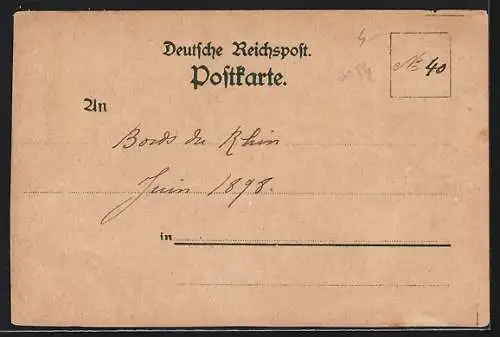 Deutsche Reichspost.
Postkarte.
№ 40
An
Bords du Rhin
Juin 1898.
in